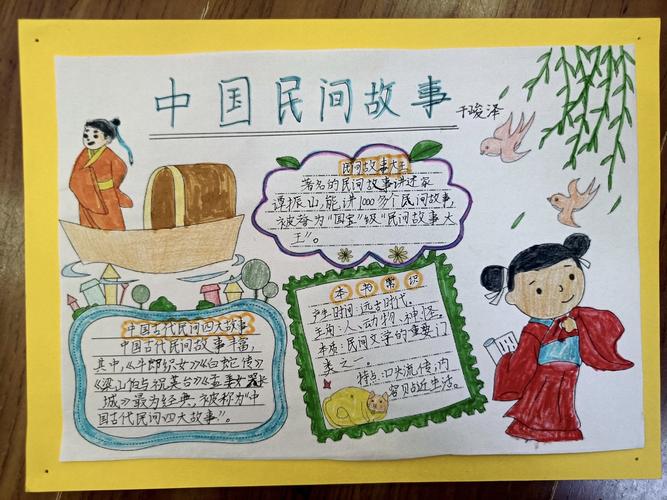 中国民间故事
于峻泽
民间故事大王
著名的民间故事讲述家
谭振山,能讲1000多个民间故事,
被誉为“国宝”级“民间故事大
王”。
本书常识
产生时间:远古时代。
主角:人、动物、神、怪。
本质:民间文学的重要门
类之一。
特点:口头流传,内
容贴近生活。
中国古代民间四大故事
中国古代民间故事丰富,
其中,《牛郎织女》《白蛇传》
《梁山伯与祝英台》《孟姜女哭长
城》最为经典,被称为“中
国古代民间四大故事”。